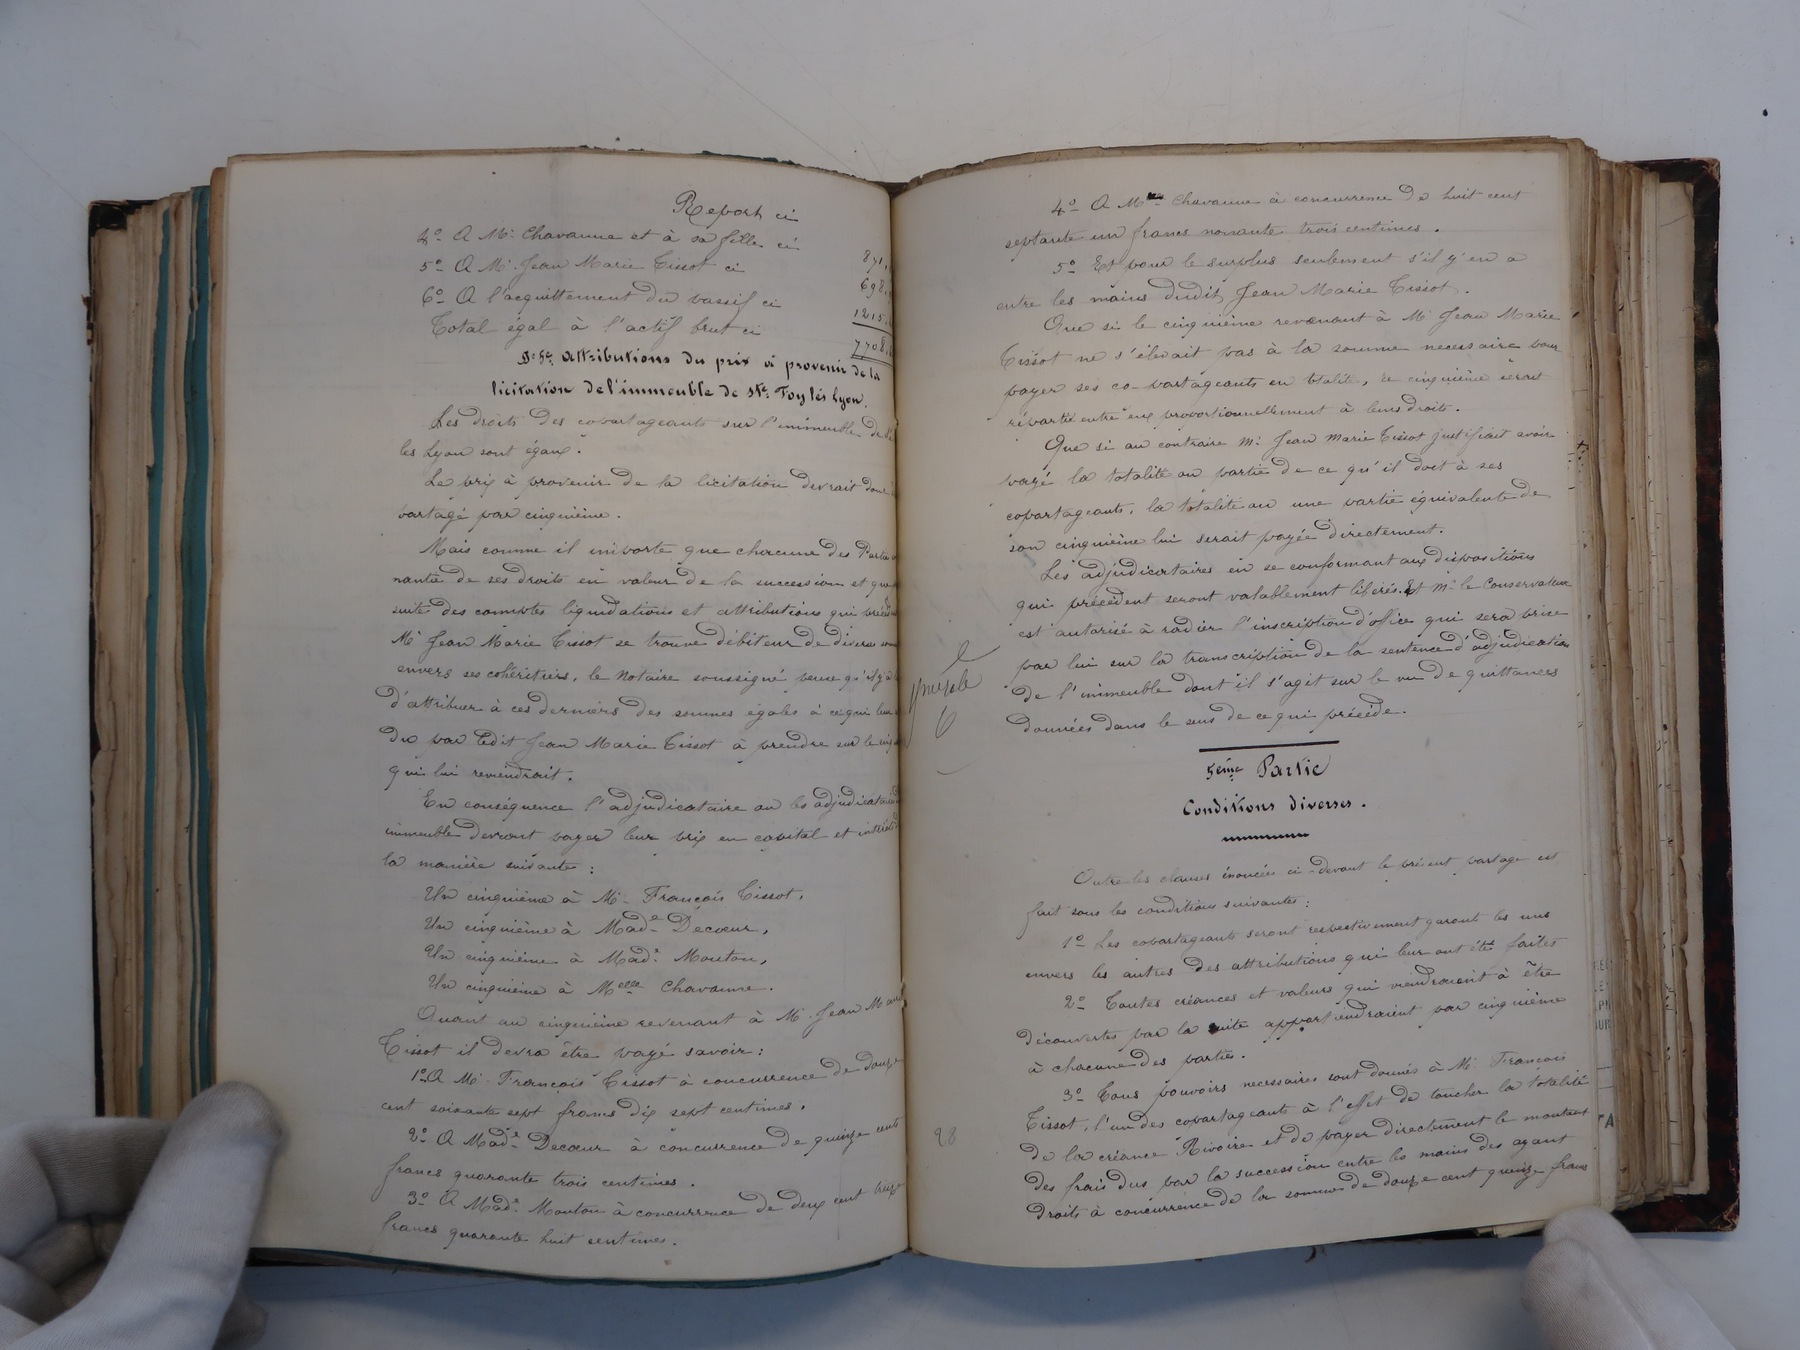 Report ci
4º A Mr. Chavanne et à sa fille ci 871,
5º A Mr. Jean Marie Tissot ci 698,
6º A l'acquittement du passif ci 1215,
Total égal à l'actif brut ci 7708,
Attributions du prix à provenir de la
licitation de l'immeuble de Ste. Foy lès Lyon.
Les droits des copartageants sur l'immeuble de
les Lyon sont égaux.
Le prix à provenir de la licitation devrait donc
partagé par cinquième.
Mais comme il importe que chacune des Parties
nantie de ses droits en valeur de la succession et que
suite des comptes liquidations et attributions qui précèdent
Mr Jean Marie Tissot se trouve débiteur de diverses
envers ses cohéritiers, le Notaire soussigné pense qu'il y a
d'attribuer à ces derniers des sommes égales à ce qui leur
du par ledit Jean Marie Tissot à prendre sur le
qui lui reviendrait.
En conséquence l'adjudicataire ou les adjudicataires
immeuble devront payer leur prix en capital et intérêts
la manière suivante :
Un cinquième à Mr. François Tissot,
Un cinquième à Made. Decœur,
Un cinquième à Made. Mouton,
Un cinquième à Melle Chavanne.
Quant au cinquième revenant à Mr. Jean Marie
Tissot il devra être payé savoir :
1º A Mr. François Tissot à concurrence de douze
cent soixante sept francs dix sept centimes.
2º A Made. Decœur à concurrence de quinze cents
francs quarante trois centimes.
3º A Made. Mouton à concurrence de deux cent treize
francs quarante huit centimes.
4º A M Chavanne à concurrence de huit cent
septante un francs nonante trois centimes.
5º Et pour le surplus seulement s'il y en a
entre les mains dudit Jean Marie Tissot.
Que si le cinquième revenant à Mr Jean Marie
Tissot ne s'élevait pas à la somme necessaire pour
payer ses co-partageants en totalité, ce cinquième serait
réparti entre eux proportionnellement à leurs droits.
Que si au contraire Mr. Jean Marie Tissot justifiait avoir
payé la totalité ou partie de ce qu'il doit à ses
copartageants, la totalité ou une partie équivalente de
son cinquième lui serait payée directement.
Les adjudicataires en se conformant aux dispositions
qui précèdent seront valablement libérés. Et Mr. le Conservateur
est autorisé à radier l'inscription d'office qui sera prise
par lui sur la transcription de la sentence d'adjudication
de l'immeuble dont il s'agit sur le vu de quittances
données dans le sens de ce qui précède.
5eme Partie
Conditions diverses.
Outre les clauses énoncées ci-devant le présent partage est
fait sous les conditions suivantes :
1º Les copartageants seront respectivement garant les uns
envers les autres des attributions qui leur ont été faites
2º Toutes créances et valeurs qui viendraient à être
découvertes par la suite appartiendraient par cinquième
à chacune des parties.
3º Tous pouvoirs necessaires sont donnés à Mr. François
Tissot, l'un des copartageants à l'effet de toucher la totalité
de la créance Rivoire et de payer directement le montant
des frais dus par la succession entre les mains des ayant
droits à concurrence de la somme de douze cent quinze francs
28